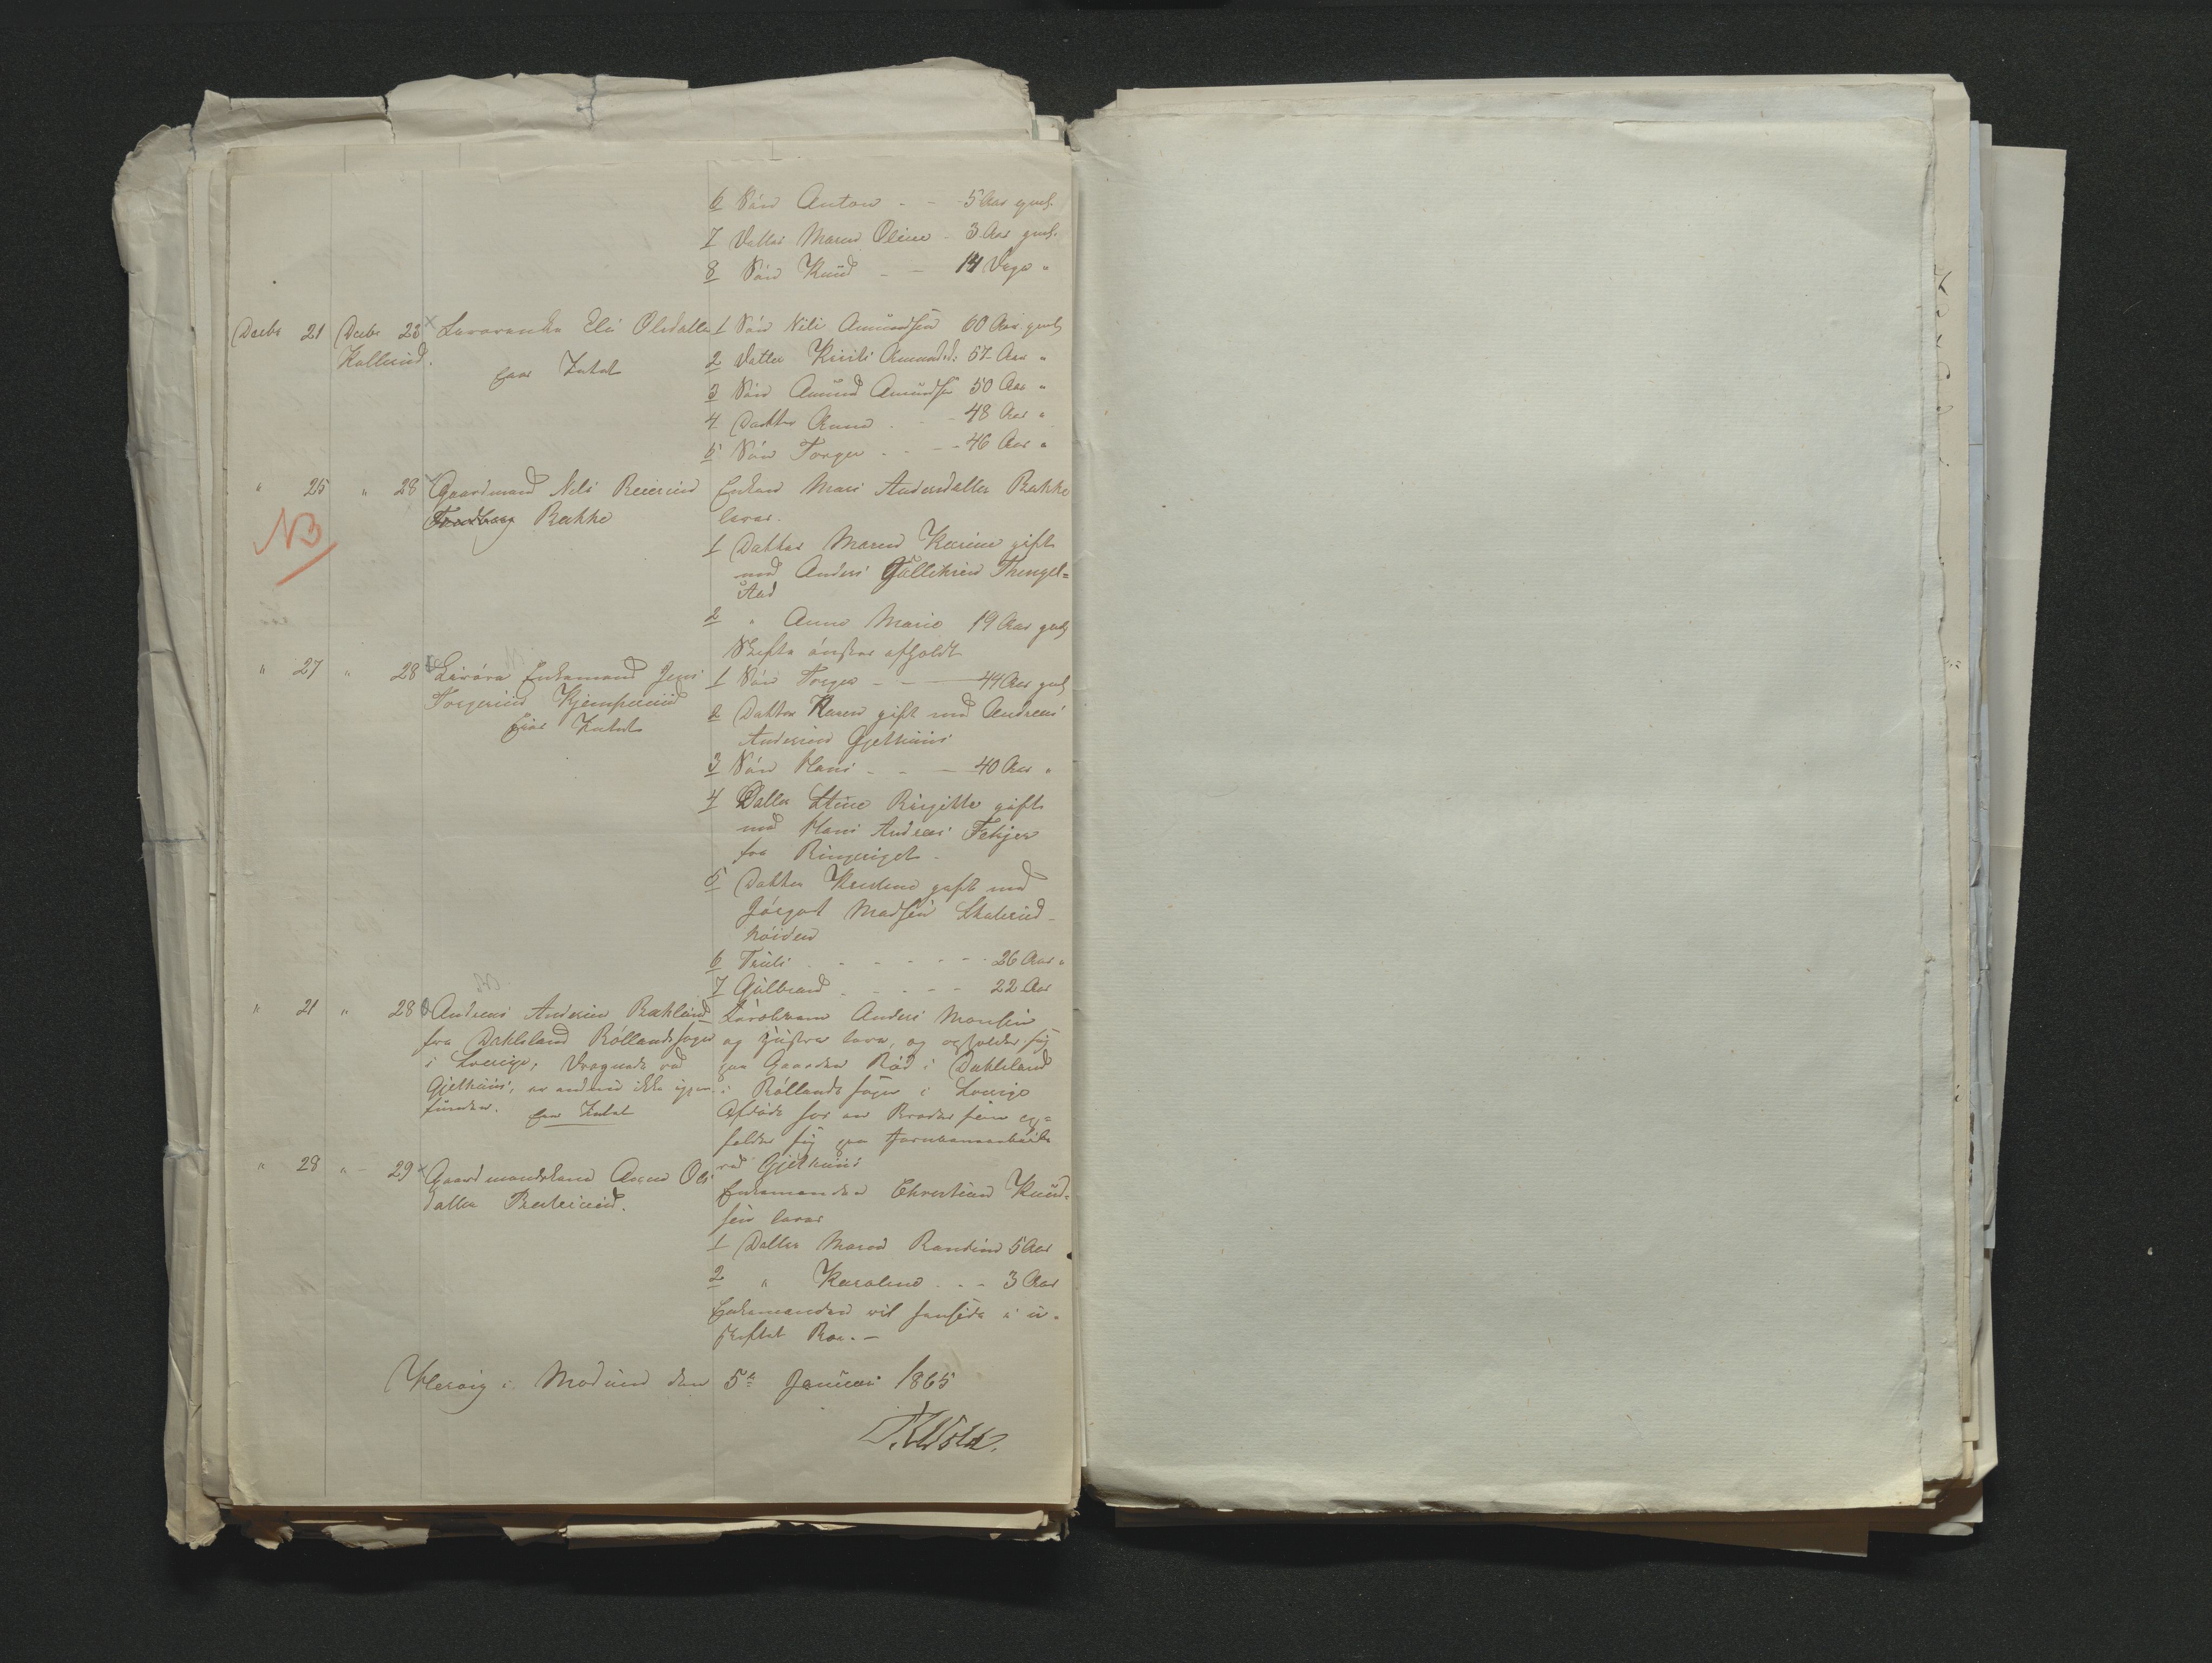 6 Søn Anton - - 5 Aar gml.
7 Datter Maren Oline - 3 Aar gml.
8 Søn Knud - - 14 Dage "
Decbr 21 Decbr 23 Eli Olsdatter
Kallerud.
har Intet
1 Søn Nils Amundsen 60 Aar gml
2 Datter Amundsd: 57 Aar "
3 Søn Amund Amundsen 50 Aar "
4 Datter Anne - 48 Aar "
5 Søn Torger - - 46 Aar "
" 25 " 28 Gaardmand Nils Reiersen
Bakke
NB
Enken Mari Andersdatter Bakke
lever.
1 Datter Maren Karine gift
med Anders Gulliksen Thingel=
stad
2 " Anne Marie 19 Aar gml
Skifte ønskes afholdt
" 27 " 28 Enkemand Jens
Torgersen Kjemperud
har Intet
1 Søn Torger - - 44 Aar gml
2 Datter Karen gift med Andreas
Andersen Gjethuus
3 Søn Hans - - 40 Aar "
4 Datter Stine Birgitte gift
med Hans Andreas Fekjer
fra Ringeriget -
5 Datter gift med
Jørgen Madsen Skalerud-
6 Truls - - - - - 26 Aar "
7 Gulbrand - - - - 22 Aar
" 21 " 28 Andreas Andersen Baklund
fra Dahlsland Røllands sogn
i Sverige, Druknede ved
Gjethuus, er endnu ikke igjen
funden. har Intet
Forældrene Anders Monsen
og Hustru lever, og opholder sig
paa Gaarden Rød i Dahlsland
i Røllands sogn i Sverige
Afdøde har en Broder som op=
holder sig paa Jernbanearbeide
ved Gjethuus
" 28 " - 29 Gaardmandskone Anne Ols
datter
Enkemanden Christian Knud=
sen lever
1 Datter Maren 5 Aar
2 " Karoline . . - 3 Aar
Enkemanden vil hensidde i u-
skiftet Boe. -
i Modum den 5te Januar 1865